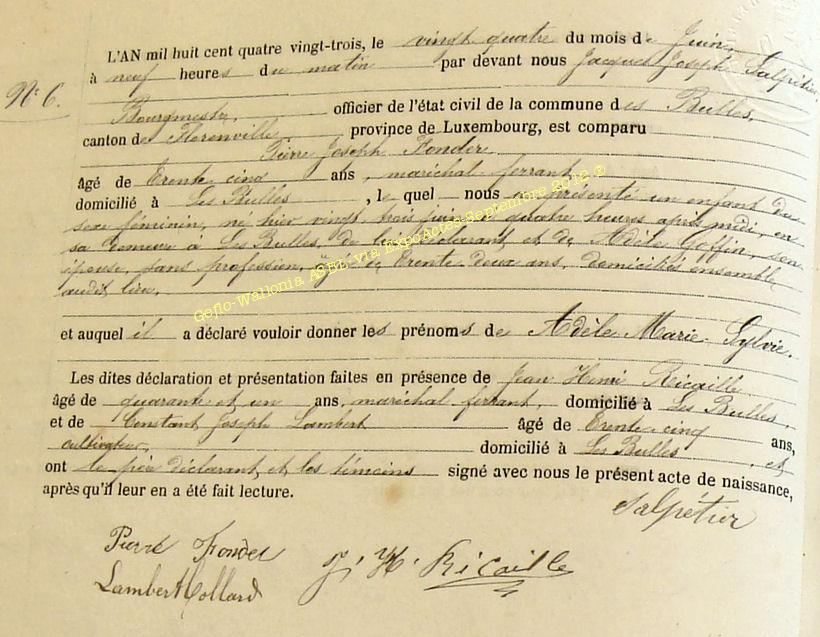 L'AN mil huit cent quatre vingt-trois, le vingt quatre du mois de Juin,
à neuf heures du matin par devant nous Jacques Joseph Salpétier,
N° 6.
Bourgmestre, officier de l'état civil de la commune des Bulles,
canton de Florenville, province de Luxembourg, est comparu
Pierre Joseph Fonder
âgé de trente cinq ans, maréchal ferrant,
domicilié à Les Bulles, le quel nous a présenté un enfant du
sexe féminin, né hier vingt trois juin à quatre heures après midi, en
sa demeure à Les Bulles, de lui déclarant et de Adèle Goffin, son
épouse, sans profession, âgée de trente deux ans, domiciliés ensemble
audit lieu.
Geflo-Wallonia ASBL via ExpoActes Septembre 2012
et auquel il a déclaré vouloir donner les prénoms de Adèle Marie Sylvie.
Les dites déclaration et présentation faites en présence de Jean Henri Ricaille
âgé de quarante et un ans, maréchal ferrant, domicilié à Les Bulles,
et de Constant Joseph Lambert âgé de trente cinq ans,
cultivateur, domicilié à Les Bulles, et
ont le père déclarant et les témoins signé avec nous le présent acte de naissance,
après qu'il leur en a été fait lecture.
Salpétier
Pierre Fonder
J. H. Ricaille
Lambert Collard